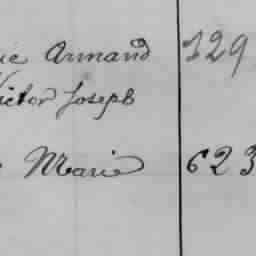 Armand 329
Victor Joseph
Marie 623